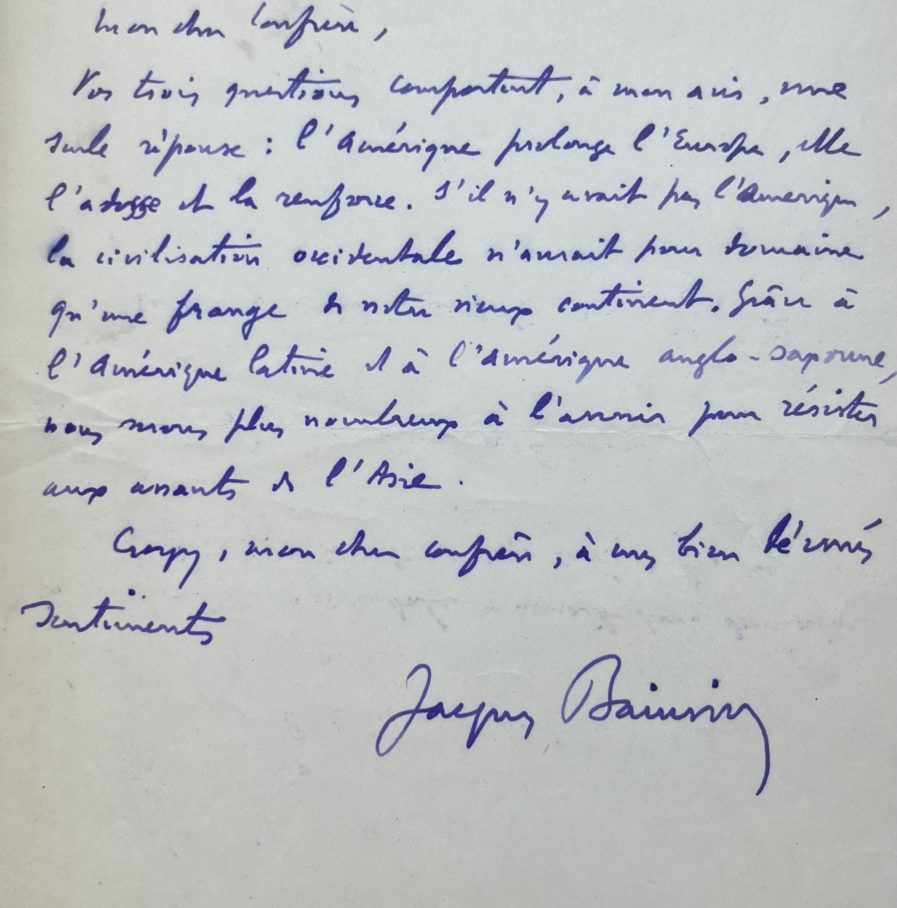 Mon cher Confrère,
Vos trois questions comportent, à mon avis, une
seule réponse : l'Amérique prolonge l'Europe, elle
l'adosse et la renforce. S'il n'y avait pas l'Amérique,
la civilisation occidentale n'aurait pour domaine
qu'une frange de notre vieux continent. Grâce à
l'Amérique latine et à l'Amérique anglo-saxonne,
nous serons plus nombreux à l'avenir pour résister
aux assauts de l'Asie.
Croyez, mon cher confrère, à mes bien dévoués
sentiments
Jacques Bainville